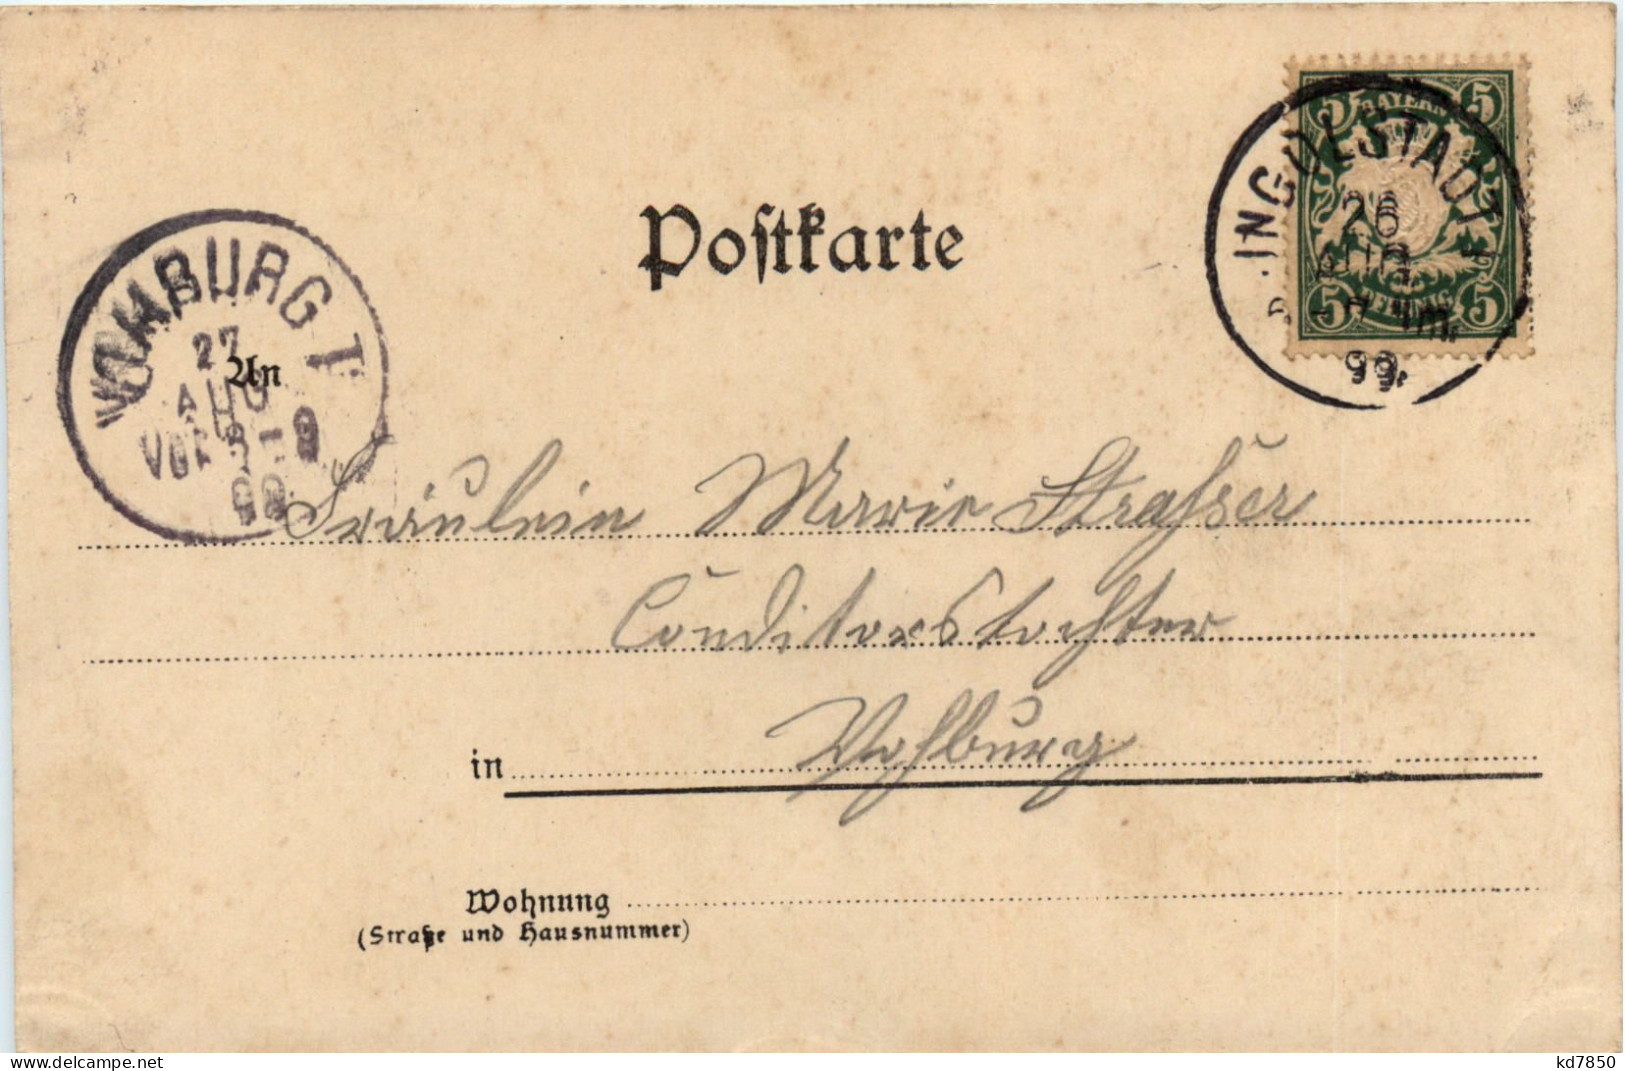 Postkarte
5 BAYERN 5
5 PFENNIG 5
INGOLSTADT
26
AUG
99.
VOHBURG I
27
AUG
VOR. 8-9
99.
An
Fräulein Marie Strasser
Conditorstochter
in Vohburg
Wohnung
(Straße und Hausnummer)
www.delcampe.net
kd7850